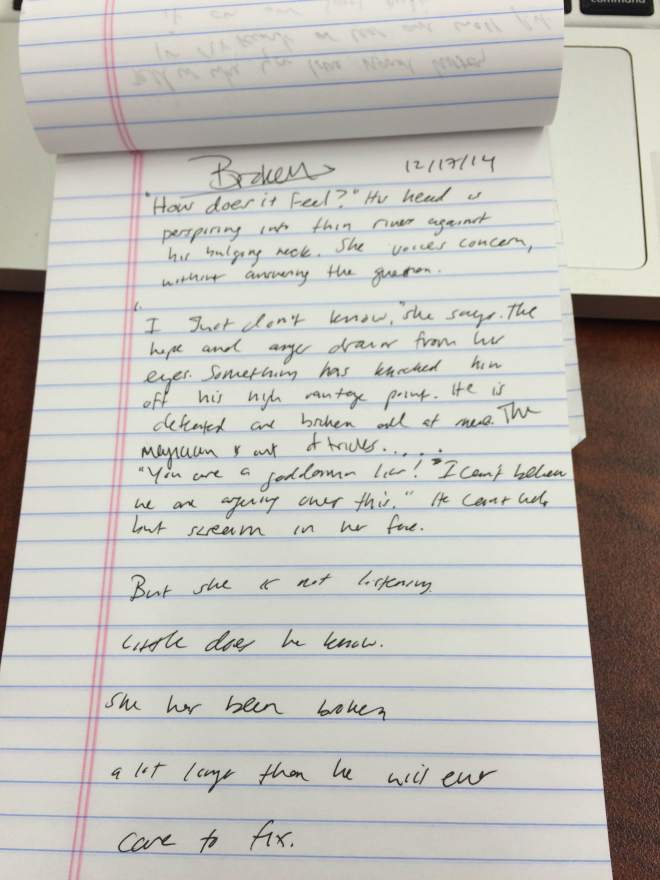 Broken 12/17/14
"How does it feel?" His head is
perspiring into thin rivers against
his bulging neck. She voices concern,
without answering the question.
"I just don't know," she says. The
hope and anger drains from her
eyes. Something has knocked him
off his high vantage point. He is
defeated and broken all at once. The
magician is out of tricks.....
"You are a goddamn liar!" "I can't believe
we are arguing over this." He can't help
but scream in her face.
But she is not listening.
Little does he know.
She has been broken
a lot longer than he will ever
care to fix.
command